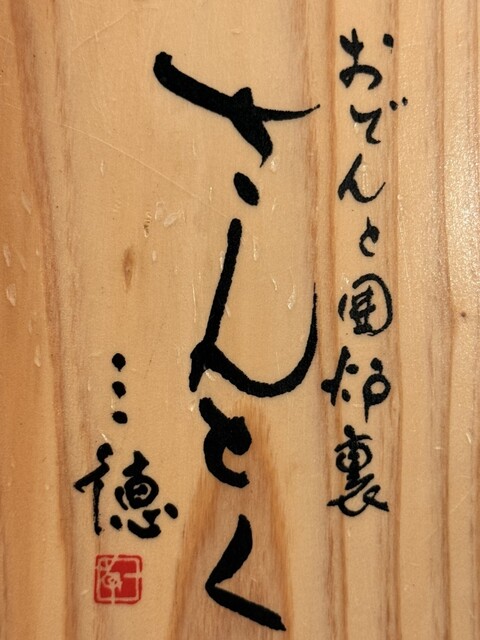 おでんと囲炉裏
さんとく
三徳